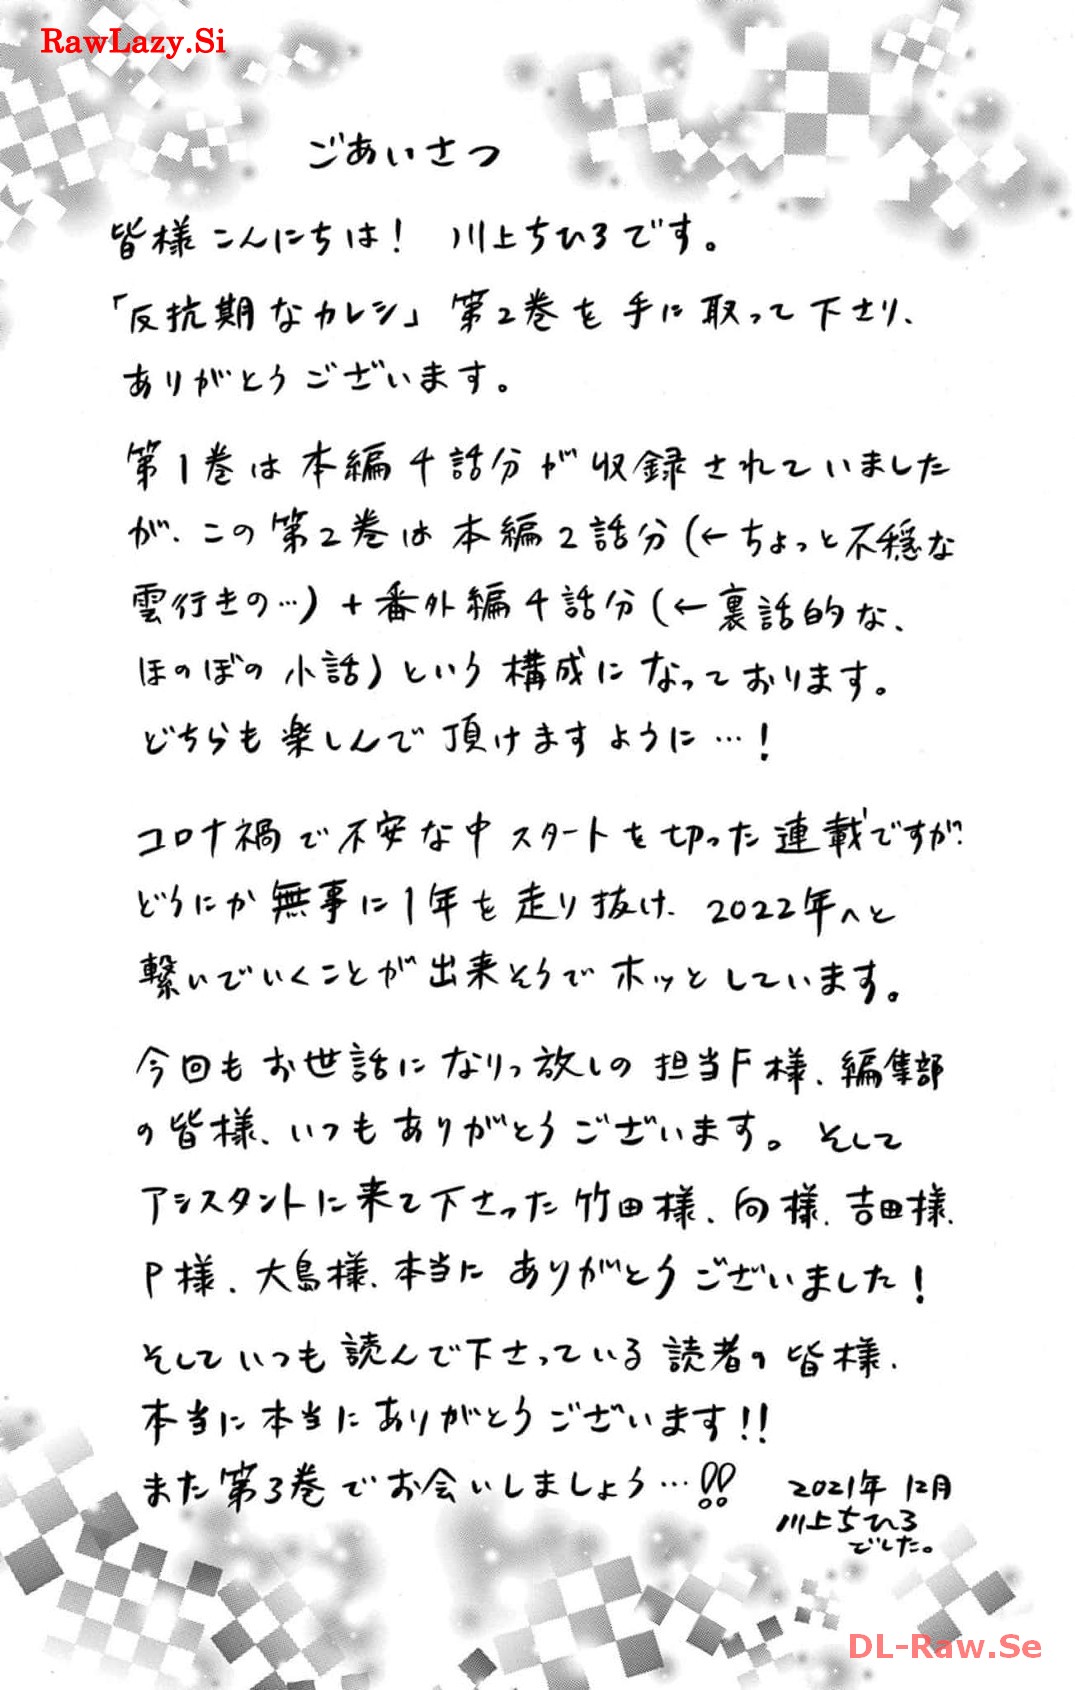 RawLazy.Si
ごあいさつ
皆様こんにちは! 川上ちひろです。
「反抗期なカレシ」第2巻を手に取って下さり、
ありがとうございます。
第1巻は本編4話分が収録されていました
が、この第2巻は本編2話分(←ちょっと不穏な
雲行きの…)+番外編4話分(←裏話的な、
ほのぼの小話)という構成になっております。
どちらも楽しんで頂けますように…!
コロナ禍で不安な中スタートを切った連載ですが、
どうにか無事に1年を走り抜け、2022年へと
繋いでいくことが出来そうでホッとしています。
今回もお世話になりっ放しの担当F様、編集部
の皆様、いつもありがとうございます。そして
アシスタントに来て下さった竹田様、向様、吉田様、
P様、大島様、本当にありがとうございました!
そしていつも読んで下さっている読者の皆様、
本当に本当にありがとうございます!!
また第3巻でお会いしましょう…!!
2021年12月
川上ちひろ
でした。
DL-Raw.Se